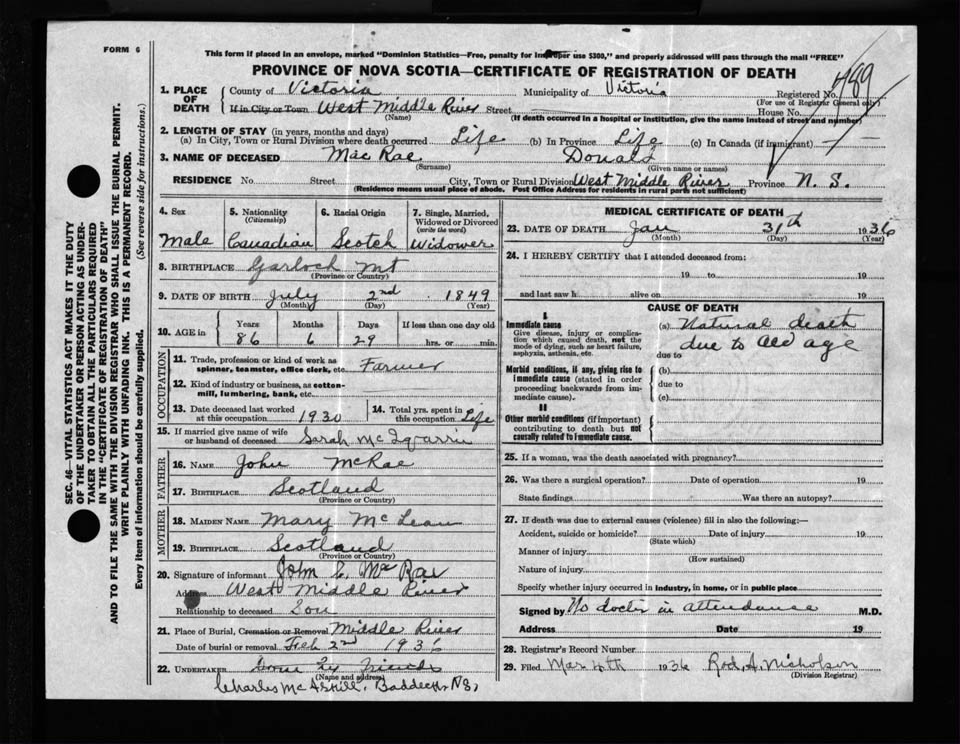 FORM 6
This form if placed in an envelope, marked "Dominion Statistics—Free, penalty for Improper use $300," and properly addressed will pass through the mail "FREE"
PROVINCE OF NOVA SCOTIA—CERTIFICATE OF REGISTRATION OF DEATH
1. PLACE OF DEATH County of Victoria Municipality of Victoria Registered No. 489
(For use of Registrar General only)
If in City or Town West Middle River Street House No.
(Name) (If death occurred in a hospital or institution, give the name instead of street and number)
2. LENGTH OF STAY (in years, months and days)
(a) In City, Town or Rural Division where death occurred Life (b) In Province Life (c) In Canada (if immigrant) —
3. NAME OF DECEASED Mac Rae Donald
(Surname) (Given name or names)
RESIDENCE No. Street City, Town or Rural Division West Middle River Province N. S.
(Residence means usual place of abode. Post Office Address for residents in rural parts not sufficient)
SEC. 46—VITAL STATISTICS ACT MAKES IT THE DUTY
OF THE UNDERTAKER OR PERSON ACTING AS UNDER-
TAKER TO OBTAIN ALL THE PARTICULARS REQUIRED
IN THE "CERTIFICATE OF REGISTRATION OF DEATH"
AND TO FILE THE SAME WITH THE DIVISION REGISTRAR WHO SHALL ISSUE THE BURIAL PERMIT.
WRITE PLAINLY WITH UNFADING INK. THIS IS A PERMANENT RECORD.
Every item of information should be carefully supplied. (See reverse side for instructions.)
4. Sex 5. Nationality (Citizenship) 6. Racial Origin 7. Single, Married, Widowed or Divorced (write the word)
Male Canadian Scotch Widower
8. BIRTHPLACE Garloch Mt
(Province or Country)
9. DATE OF BIRTH July 2nd 1849
(Month) (Day) (Year)
10. AGE in Years Months Days If less than one day old
86 6 29 hrs. or min.
OCCUPATION
11. Trade, profession or kind of work as spinner, teamster, office clerk, etc. Farmer
12. Kind of industry or business, as cotton-mill, lumbering, bank, etc.
13. Date deceased last worked at this occupation 1930 14. Total yrs. spent in this occupation Life
15. If married give name of wife or husband of deceased Sarah Mc
FATHER
16. NAME John McRae
17. BIRTHPLACE Scotland
(Province or Country)
MOTHER
18. MAIDEN NAME Mary Mc Lean
19. BIRTHPLACE Scotland
(Province or Country)
20. Signature of informant John C. Mc Rae
Address West Middle River
Relationship to deceased Son
21. Place of Burial, Cremation or Removal Middle River
Date of burial or removal Feb 2nd 1936
22. UNDERTAKER Done by Friends
(Name and address)
Charles McAskill, Baddeck N.S.
MEDICAL CERTIFICATE OF DEATH
23. DATE OF DEATH Jan 31th 1936
(Month) (Day) (Year)
24. I HEREBY CERTIFY that I attended deceased from:
19 to 19
and last saw h alive on 19
CAUSE OF DEATH
I
Immediate cause (a) Natural death
Give disease, injury or complication which caused death, not the mode of dying, such as heart failure, asphyxia, asthenia, etc.
due to old age
due to
Morbid conditions, if any, giving rise to immediate cause (stated in order proceeding backwards from immediate cause).
(b)
due to
(c)
II
Other morbid conditions (if important) contributing to death but not causally related to immediate cause.
25. If a woman, was the death associated with pregnancy?
26. Was there a surgical operation? Date of operation 19
State findings Was there an autopsy?
27. If death was due to external causes (violence) fill in also the following:—
Accident, suicide or homicide? Date of injury 19
(State which)
Manner of injury
(How sustained)
Nature of injury
Specify whether injury occurred in industry, in home, or in public place
Signed by No doctor in attendance M.D.
Address Date 19
28. Registrar's Record Number
29. Filed Mar 4th 1936 Rod. A. Nicholson
(Division Registrar)